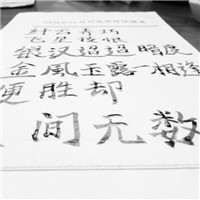 纤云弄巧
飞星传恨
银汉迢迢暗度
金風玉露一相逢
便胜却
间无数